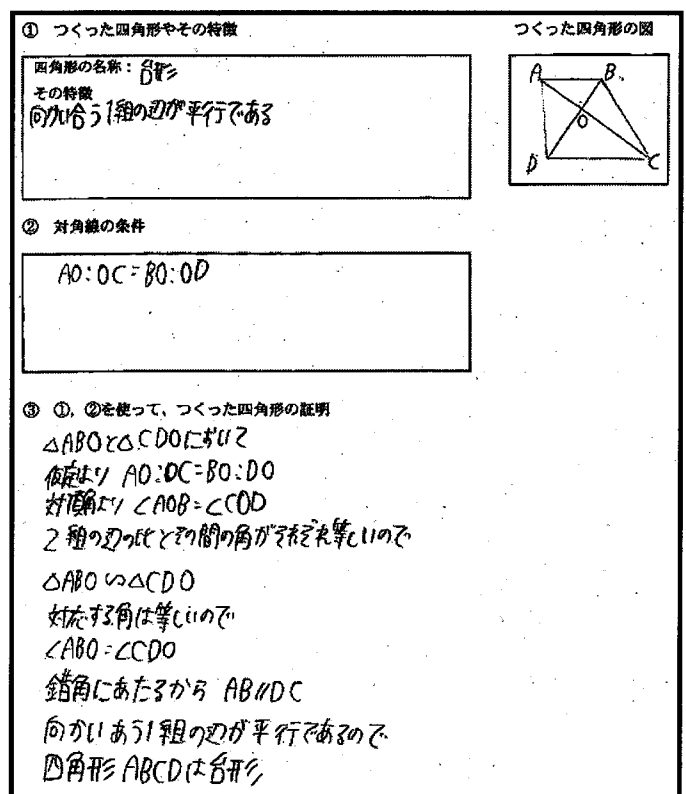 ① つくった四角形やその特徴
つくった四角形の図
四角形の名称：台形
その特徴
向かい合う1組の辺が平行である
A B
O
D C
② 対角線の条件
AO:OC=BO:OD
③ ①，②を使って、つくった四角形の証明
△ABOと△CDOにおいて
仮定より AO:OC=BO:DO
対頂角より ∠AOB=∠COD
2組の辺の比とその間の角がそれぞれ等しいので
△ABO∽△CDO
対応する角は等しいので
∠ABO=∠CDO
錯角にあたるから AB//DC
向かいあう1組の辺が平行であるので
四角形ABCDは台形